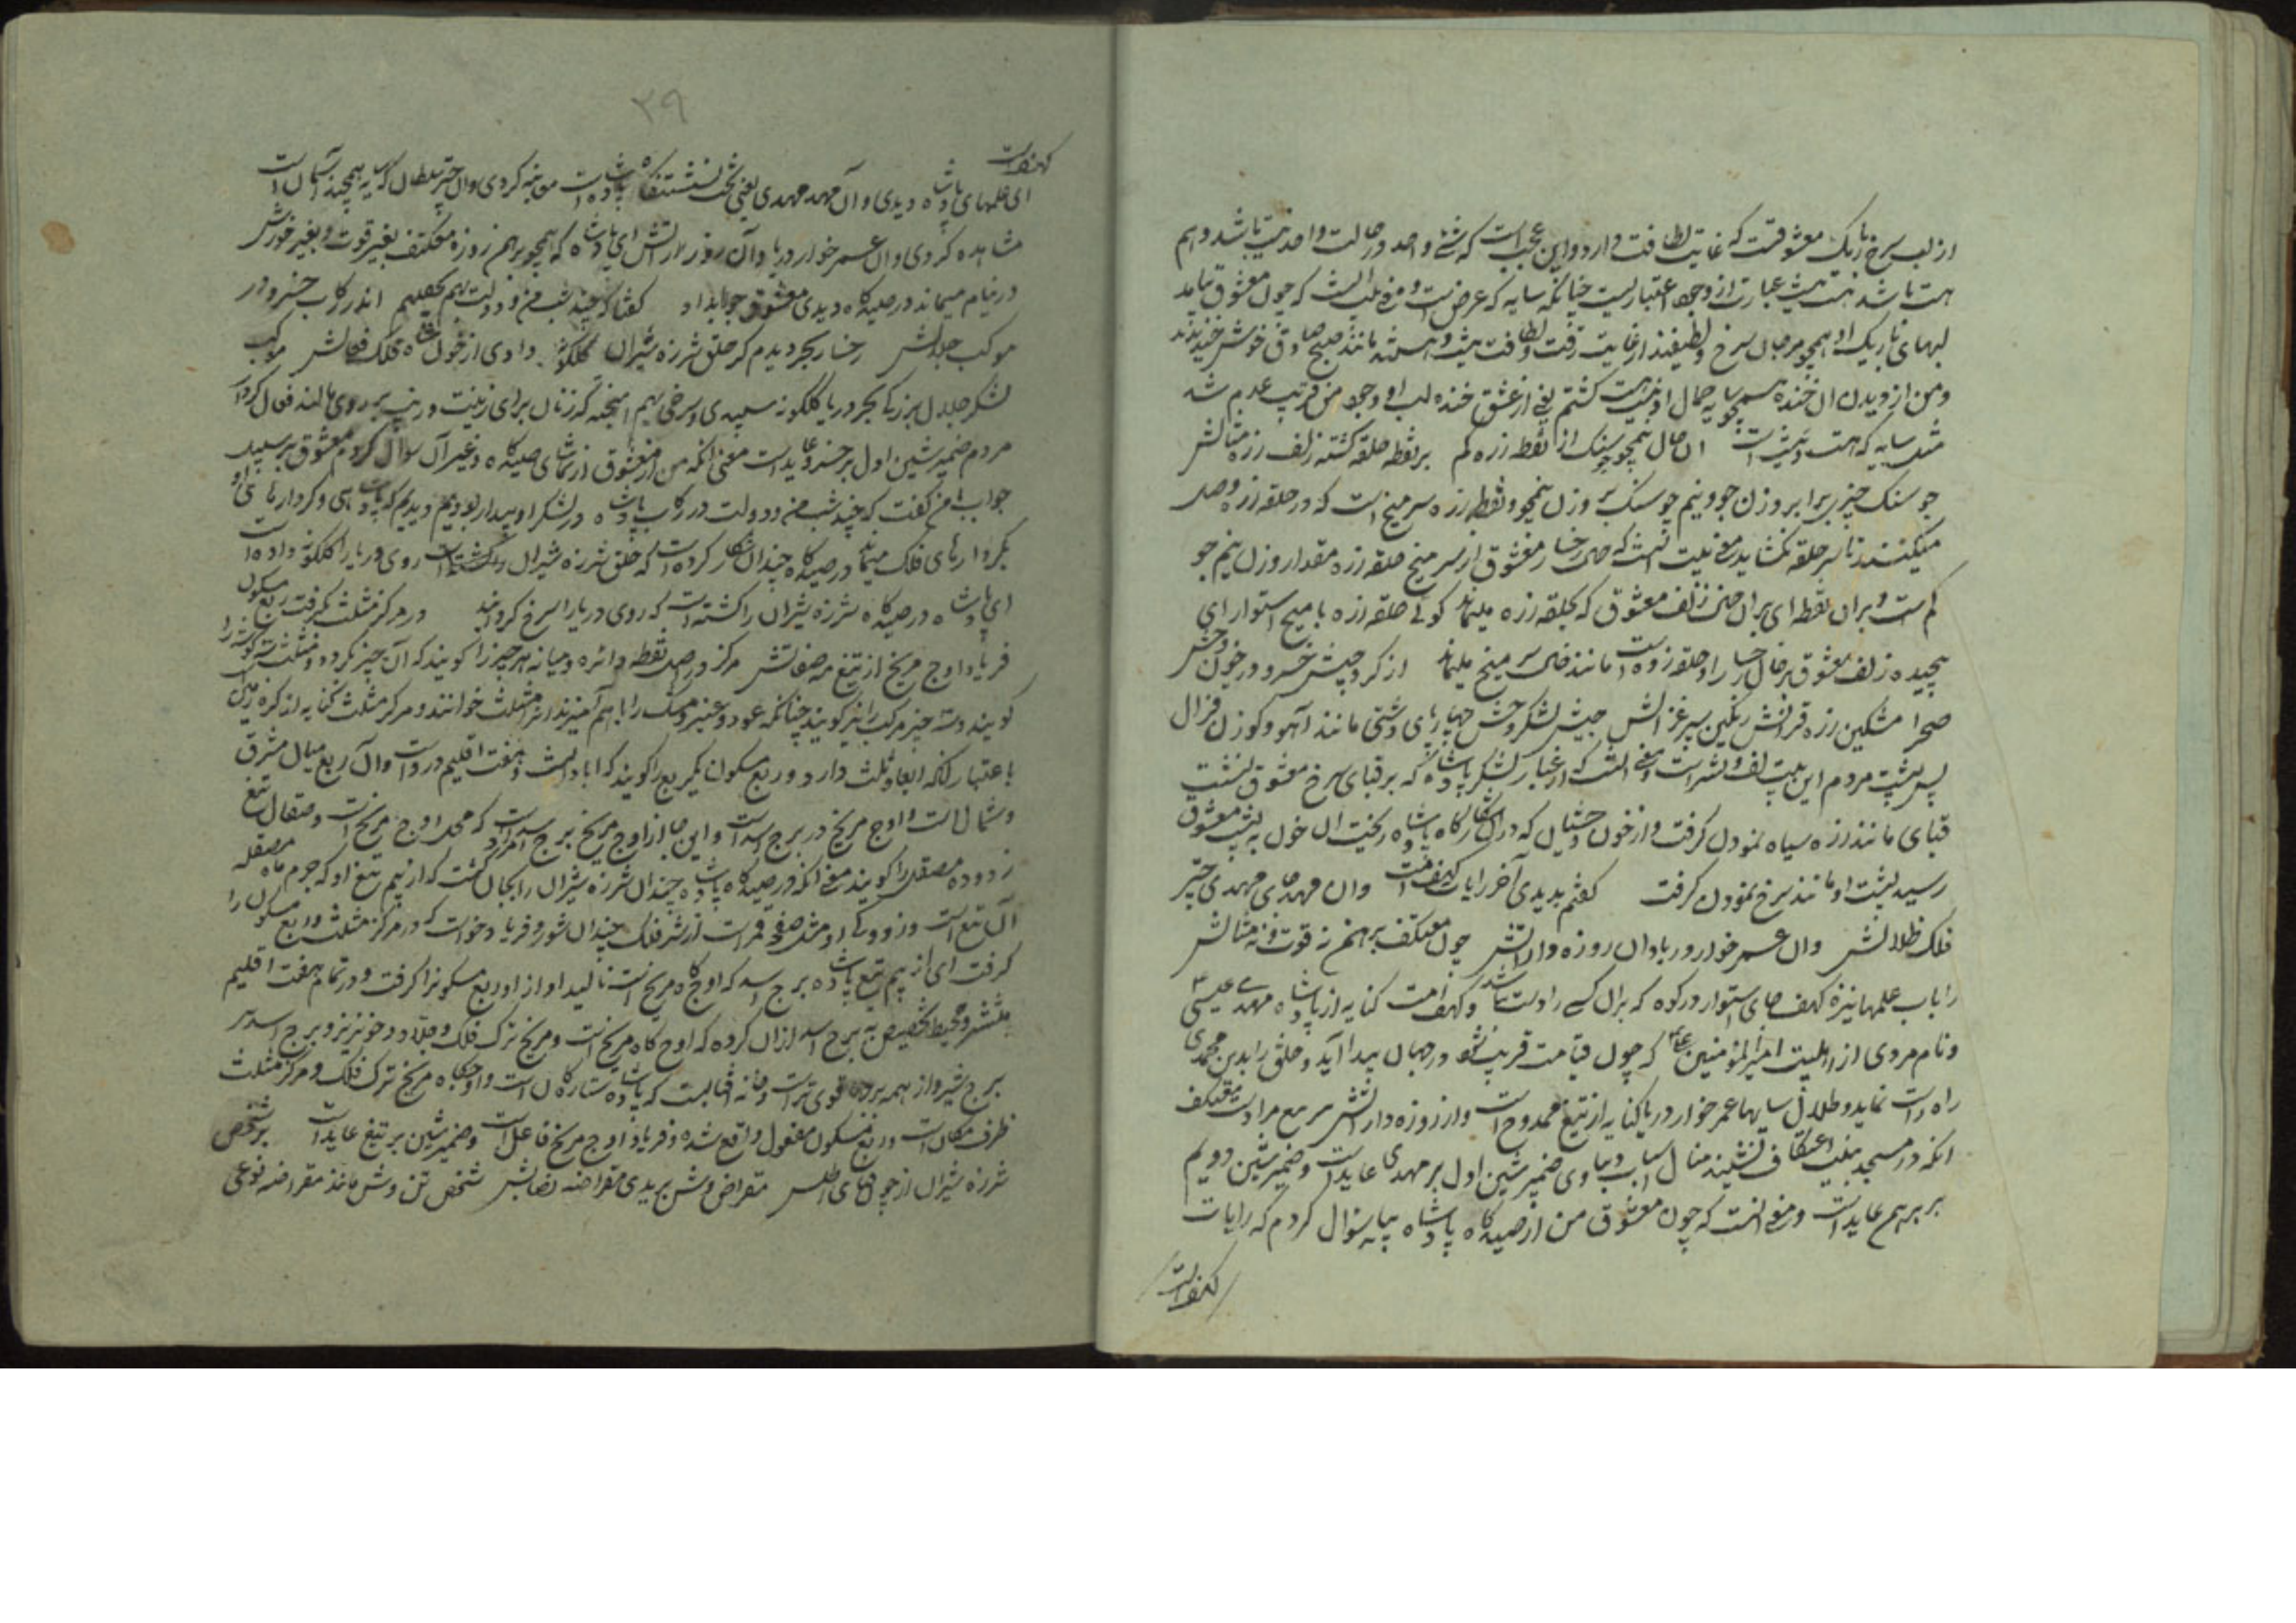 از لب سرخ نازک معشوقست که غایت لطافت دارد و این عجب است که شئ واحد در حالت واحد نیست باشد و هم
هست باشد هست نیست عبارت از وجود اعتباریست چنانکه سایه که عرض است و معنی بیت آنست که چون معشوق بیامد
لبهای باریک او همچو مرجان سرخ و لطیفند از غایت رقت و لطافت نیست و هست مانند صبح صادق خوش خندیدند
و من از دیدن آن خنده همچو سایه جمال او نیست هست گشتم یعنی از عشق خنده لب او وجود من قریب عدم شد
مثل سایه که هست و نیست است آن خال نیمجو سنگ از نقطه زره کم بر نقطه حلقه گشته زلف زره مثالش
جو سنگ چیزی برابر وزن جو و نیم جو سنگ بر وزن نیمجو و نقطه زره سر میخ است که در حلقه زره وصل
میکنند تا سر حلقه نگشاید معنی بیت آنست که خال رخسار معشوق از سر میخ حلقه زره مقدار وزن نیم جو
کم است و بر آن نقطه ای بر آن خال زلف معشوق که بحلقه زره میماند گوئی حلقه زره با میخ استوار ای
پیچیده زلف معشوق بر خال رخسار او حلقه زده است مانند خال سر میخ میماند از گرد جیش خسرو در خون وحش
صحرا مشکین زره قزاگش رنگین سپر غزالش جیش لشکر و وحش چهارپای دشتی مانند آهو و گوزن غزال
پس پشت مردم این بیت لف و نشر است و معنی آنست که از غبار لشکر پادشاه که بر قبای سرخ معشوق نشست
قبای مانند زره سیاه نمودن گرفت و از خون وحشیان که در آن شکارگاه پادشاه ریخت آن خون به پشت معشوق
رسید پشت او مانند سرخ نمودن گرفت گفتم بدیدی آخر رایات کهف امت وان مهدهای مهدی چتر
فلک ظلالش وان عمر خوار دریا وان روزه دار آتش چون معتکف برهمن نه قوت و نه منالش
رایات علمها نیزه کهف جای استوار در کوه که بر آن کسی را دست نباشد و کهف امت کنایه از پادشاه مهدی عیسی
و نام مردی از اهلبیت امیرالمؤمنین که چون قیامت قریب شود در جهان پیدا آید و خلق را بدین محمدی
راه راست نماید و ظلال سایها عمر خوار دریا کنایه از تیغ ممدوح است و از روزه دار آتش مراد است معتکف
آنکه در مسجد بنیت اعتکاف نشیند منال اسباب دنیاوی ضمیر شین اول بر مهدی عاید است و ضمیر شین دویم
بر برهمن عاید است و معنی آنست که چون معشوق من از صیدگاه پادشاه بیامد سؤال کردم که رایات
کهف امت
۳۹
کهف امت
ای علمهای پادشاه دیدی و آن مهد مهدی یعنی تخت نشستنگاه پادشاه است معاینه کردی و آن چتر سلطان که سایه همچند آسمان است
مشاهده کردی و آن عمر خوار دریا و آن روزه دار آتش ای پادشاه که همچو برهمن روزه معتکف بغیر قوت و بغیر خورش
در نیام میماند در صیدگاه دیدی معشوق جواب داد گفتا که چند شب من و دولت بهم نخفتیم اندر رکاب خسرو در
موکب جلالش رخسار بحر دیدم کز حلق شرزه شیران گلگونه دادی از خون فلک فعالش موکب
لشکر جلال بزرگی بحر دریا گلگونه سپیدی و سرخی بهم آمیخته که زنان برای زینت و زیب بر روی مالند فعال کردار
مردم ضمیر شین اول بر خسرو عاید است معنی آنکه من از معشوق از تماشای صیدگاه و غیر آن سؤال کردم معشوق بر سبیل
جواب بمن گفت که چند شب من و دولت در رکاب پادشاه در لشکر او بیدار بودیم و دیدیم که پادشاهی و کردارهای او
بکردارهای فلک میماند در صیدگاه چندان شکار کرده است که حلق شرزه شیران روی دریا را گلگونه داده است
ای پادشاه در صیدگاه شرزه شیران را کشته است که روی دریا را سرخ گردانید در مرکز مثلث بگرفت ربع مسکون
فریاد اوج مریخ از تیغ مه صقالش مرکز در اصل نقطه دائره و میانه هر چیز را گویند که آن چیز گردد و مثلث سه گوشه را
گویند و سه چیز مرکب را نیز گویند چنانکه عود و عنبر و مشک را با هم آمیزند آنرا مثلث خوانند و مرکز مثلث کنایه از کره زمین
باعتبار آنکه ابعاد ثلث دارد و ربع مسکون آن یک ربع را گویند که آبادانیست و هفت اقلیم در وست و آن ربع میان مشرق
و شمال است و اوج مریخ در برج اسد است و اینجا از اوج مریخ برج اسد مراد است که محل اوج مریخ است و صقال تیغ
زدوده مصقل را گویند معنی آنکه در صیدگاه پادشاه چندان شرزه شیران را بجان کشت که از بیم تیغ او که جرم ماه مصقله
آن تیغ است و زدودگی او مثل صفحه قمر است از شیر فلک چندان شور و فریاد خواست که در مرکز مثلث ربع مسکون را
گرفت ای از بیم تیغ پادشاه برج اسد که اوجگاه مریخ است نالید آواز او ربع مسکون را گرفت و در تمام هفت اقلیم
منتشر و محیط تخصیص به برج اسد از آن کرده که اوجگاه مریخ است و مریخ ترک فلک و جلاد و خونریز و برج اسد
برج شیر و از همه برجها قوی تر است و خانه آفتابست که پادشاه ستارگان است و اوجگاه مریخ ترک فلک و مرکز مثلث
ظرف مکان است و ربع مسکون مفعول واقع شده و فریاد اوج مریخ فاعل است و ضمیر شین بر تیغ عاید است بر شخص
شرزه شیران از جو قبای اطلس مقراض وش بریدی مقراضه نصالش شخص تن وش مانند مقراضه نوعی